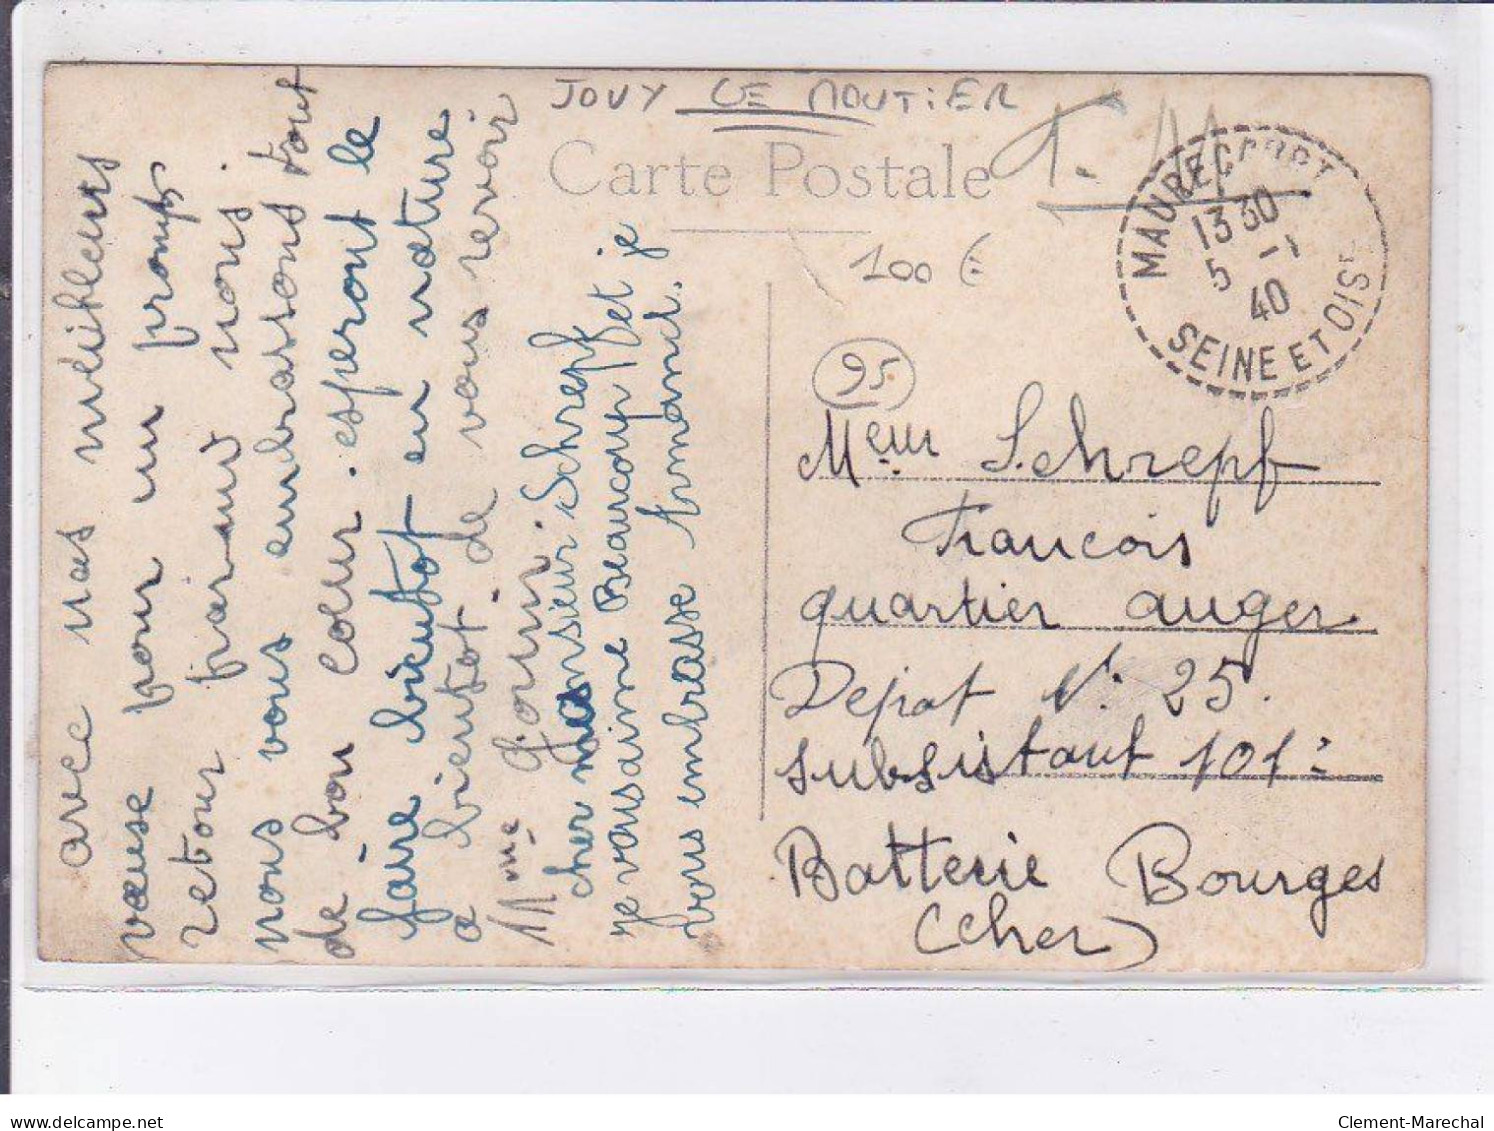 JOUY LE MOUTIER
Carte Postale
T. 11
100 €
MAURECOURT
13 30
5 -1
40
SEINE ET OISE
95
Meur Schrepf
Francois
quartier auger
Depot N° 25.
subsistant 101e
Batterie Bourges
(cher)
avec nos meilleurs
vœuse pour un promp
retour parmi nous.
nous vous embrassons tout
de bon cœur. esperont le
faire bientot en nature
a bientot. de vous revoir
Mme
cher monsieur Schrepf
je vous aime Beaucoup et je
vous embrasse Armand.
delcampe.net
Clement-Marechal